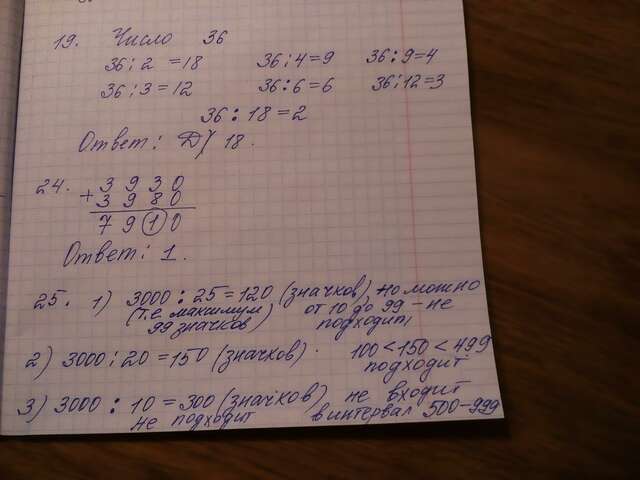 19. Число 36
36:2=18 36:4=9 36:9=4
36:3=12 36:6=6 36:12=3
36:18=2
Ответ: Д) 18.
24. 3930
+3980
7910
Ответ: 1.
25. 1) 3000:25=120 (значков), но можно
(т.е максимум от 10 до 99 - не
99 значков) подходит
2) 3000:20=150 (значков). 100<150<499
подходит
3) 3000:10=300 (значков) не входит
не подходит в интервал 500-999